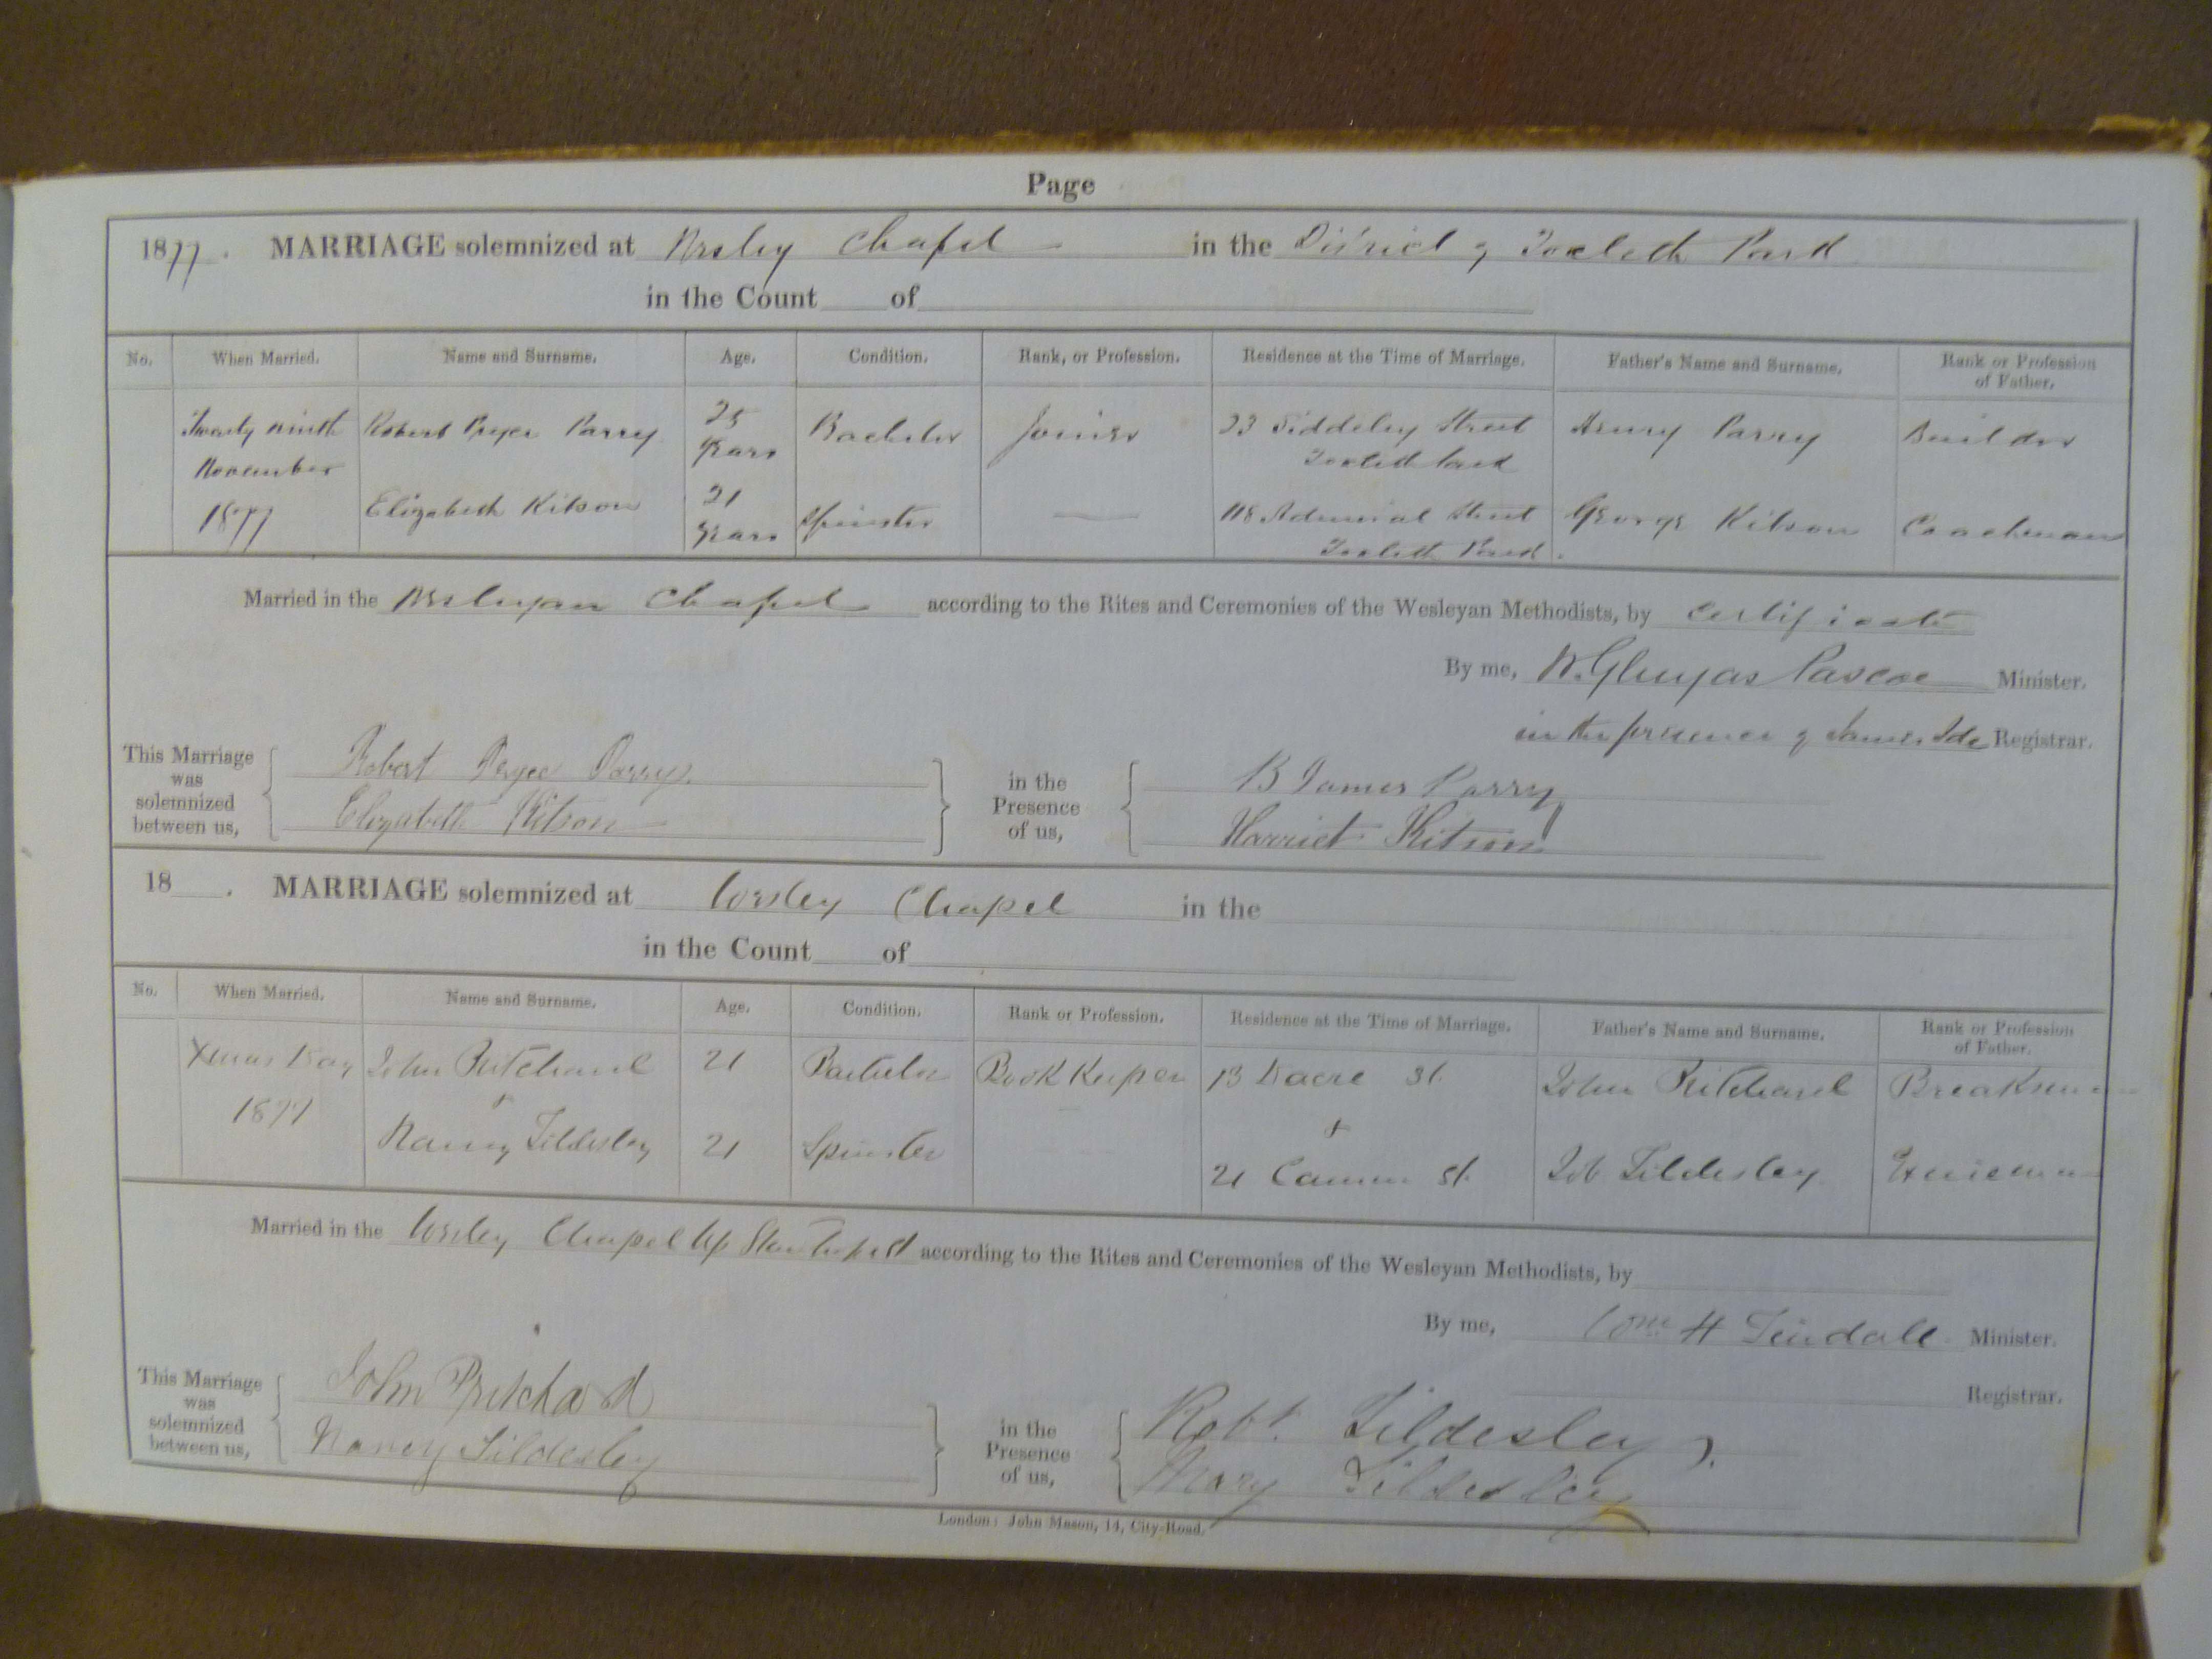 Page
1877. MARRIAGE solemnized at Wesley Chapel in the District of Toxteth Park
in the Count of
No. When Married. Name and Surname. Age. Condition. Rank, or Profession. Residence at the Time of Marriage. Father's Name and Surname. Rank or Profession of Father.
Twenty ninth Robert Pryer Parry 25 Bachelor Joiner 23 Tiddeley Street Henry Parry Builder
November years Toxteth Park
1877 Elizabeth Kitson 21 Spinster 118 Admiral Street George Kitson Coachman
years Toxteth Park.
Married in the Wesleyan Chapel according to the Rites and Ceremonies of the Wesleyan Methodists, by Certificate
By me, W. Gluyas Pascoe Minister.
in the presence of James Ide Registrar.
This Marriage was solemnized between us, Robert Parry. in the Presence of us, B James Parry
Elizabeth Kitson Harriet Kitson
18 . MARRIAGE solemnized at Wesley Chapel in the
in the Count of
No. When Married. Name and Surname. Age. Condition. Rank or Profession. Residence at the Time of Marriage. Father's Name and Surname. Rank or Profession of Father.
Xmas Day John Pritchard 21 Bachelor Book Keeper 13 Dacre St. John Pritchard Breaksman
1877 + +
Nancy Tildesley 21 Spinster 21 St. Job Tildesley
Married in the Wesley Chapel according to the Rites and Ceremonies of the Wesleyan Methodists, by
By me, Wm H Tindall Minister.
Registrar.
This Marriage was solemnized between us, John Pritchard in the Presence of us, Robt. Tildesley
Nancy Tildesley Mary Tildesley
London: John Mason, 14, City-Road.